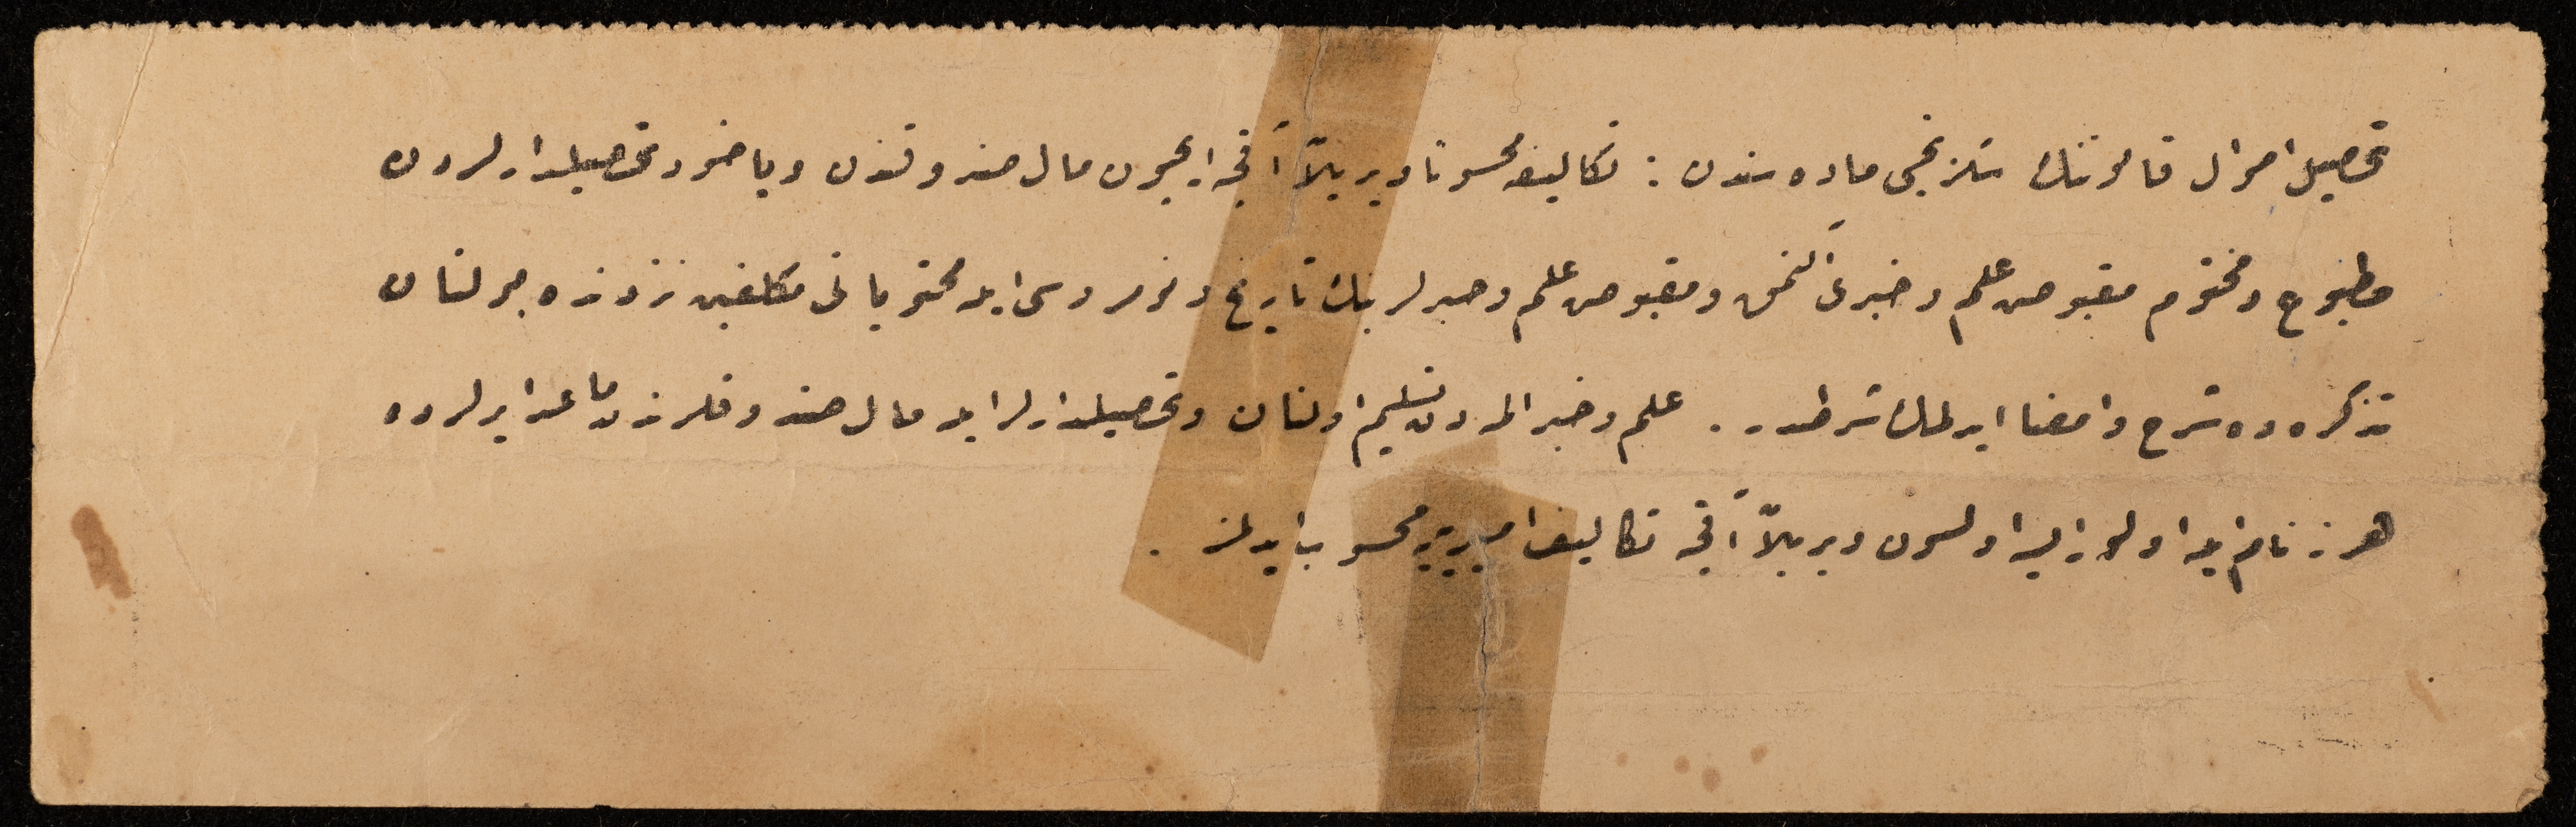 تحصیل اموال قانوننك سكزنجی ماده سندن : تكالیفه محسوبا ویریلان آقچه ایچون مال صندوقندن ویاخود تحصیلدارلردن
مطبوع ومختوم مقبوض علم وخبری آلنمق ومقبوض علم وخبرلرینك تاریخ ونومروسی ایله محتویاتی مكلفین نزدنده بولنان
تذكره ده شرح وامضا ایدلمك شرطدر . علم وخبر المدن تسلیم اولنان وتحصیلدارلر ایله مال صندوقلرندن ماعدا یرلرده
هر نه نام ایله اولور ایسه اولسون ویریلان آقچه تكالیف امیریه یه محسوب ایدلمز .